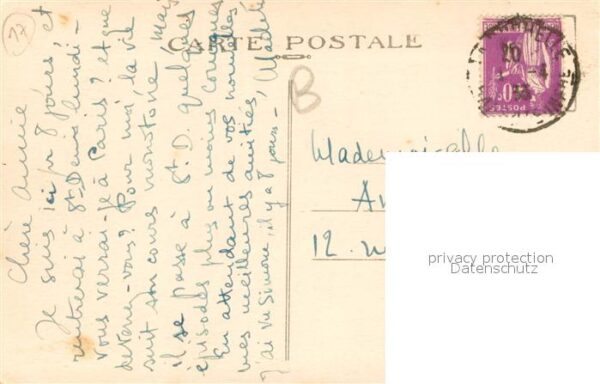 77
CARTE POSTALE
B
LA ROCHELLE
20
40c
POSTES
Chère amie
Je suis ici pr 8 jours, et
rentrerai à St-Denis lundi -
vous verrai-je à Paris ? et que
devenez-vous ? Pour moi, la vie
suit son cours monotone, mais
il se passe à St. D. quelques
épisodes plus ou moins comiques
En attendant de vos nouvelles
mes meilleures amitiés,
J'ai vu Simone, il y a 8 jours -
Mademoiselle
12
privacy protection
Datenschutz